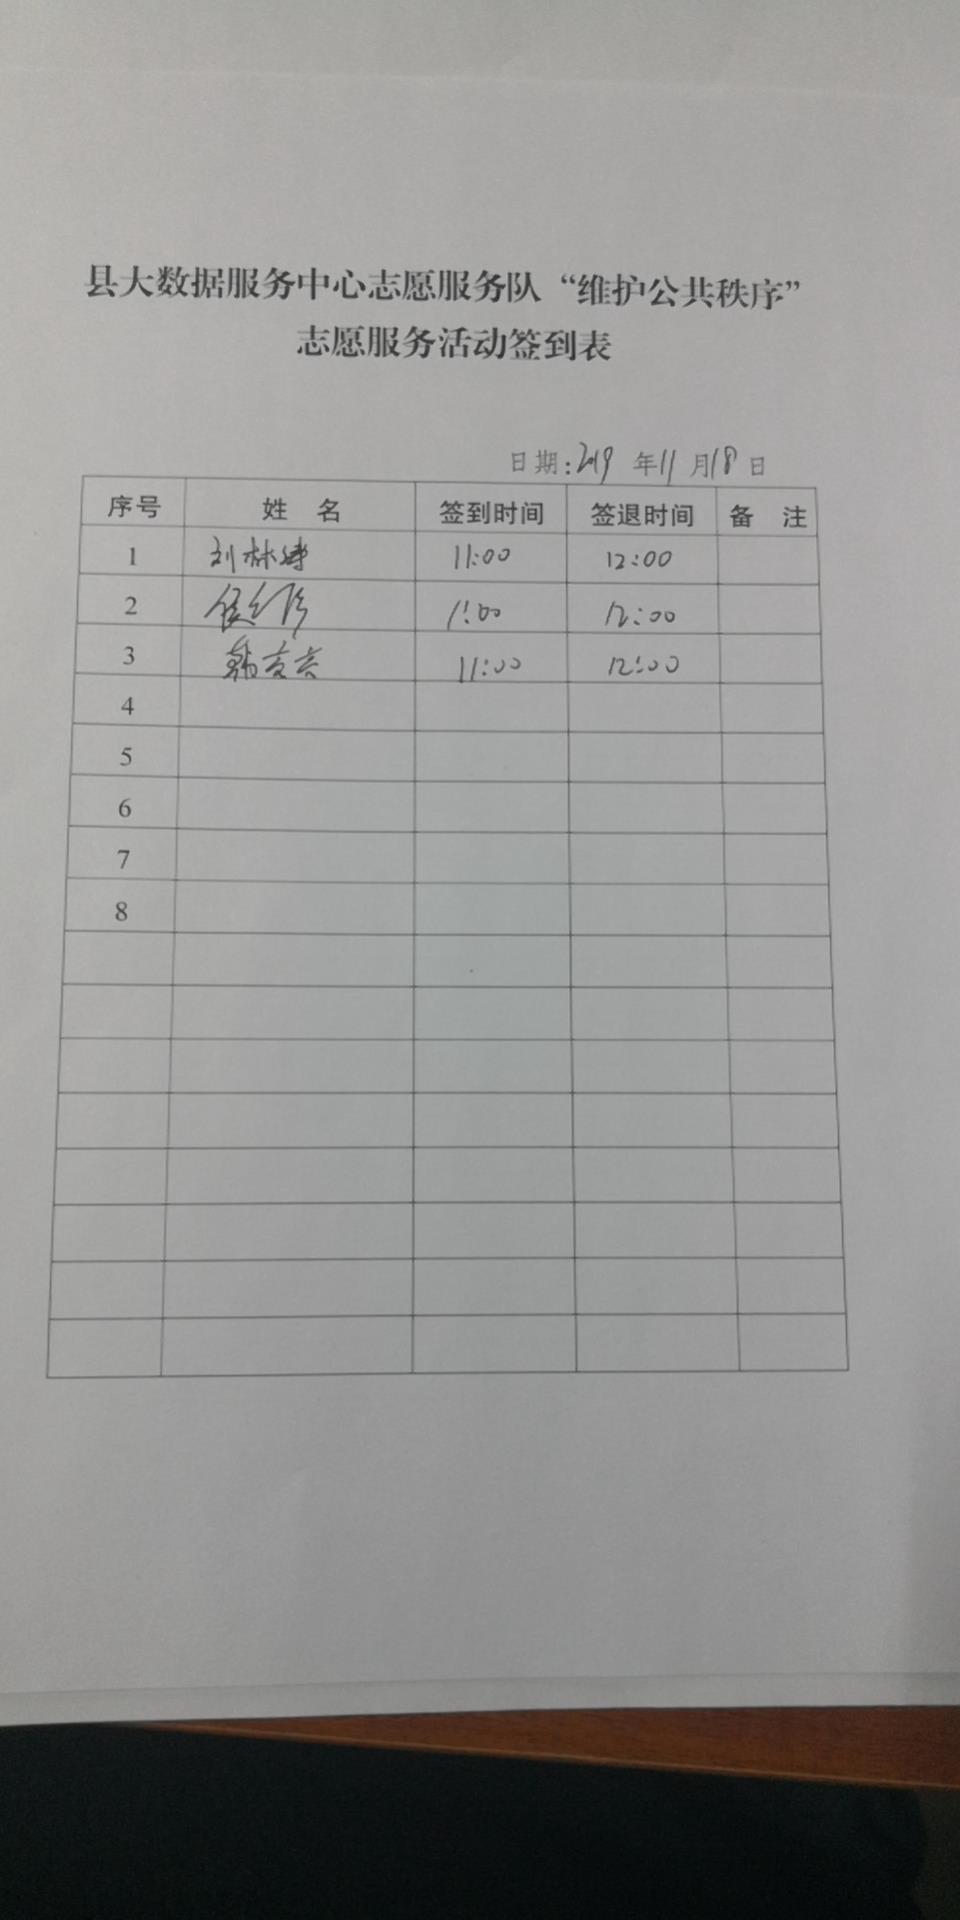 县大数据服务中心志愿服务队“维护公共秩序”
志愿服务活动签到表
日期:2019 年11 月18 日
序号 姓 名 签到时间 签退时间 备 注
1 刘林 11:00 12:00
2 11:00 12:00
3 韩 11:00 12:00
4
5
6
7
8